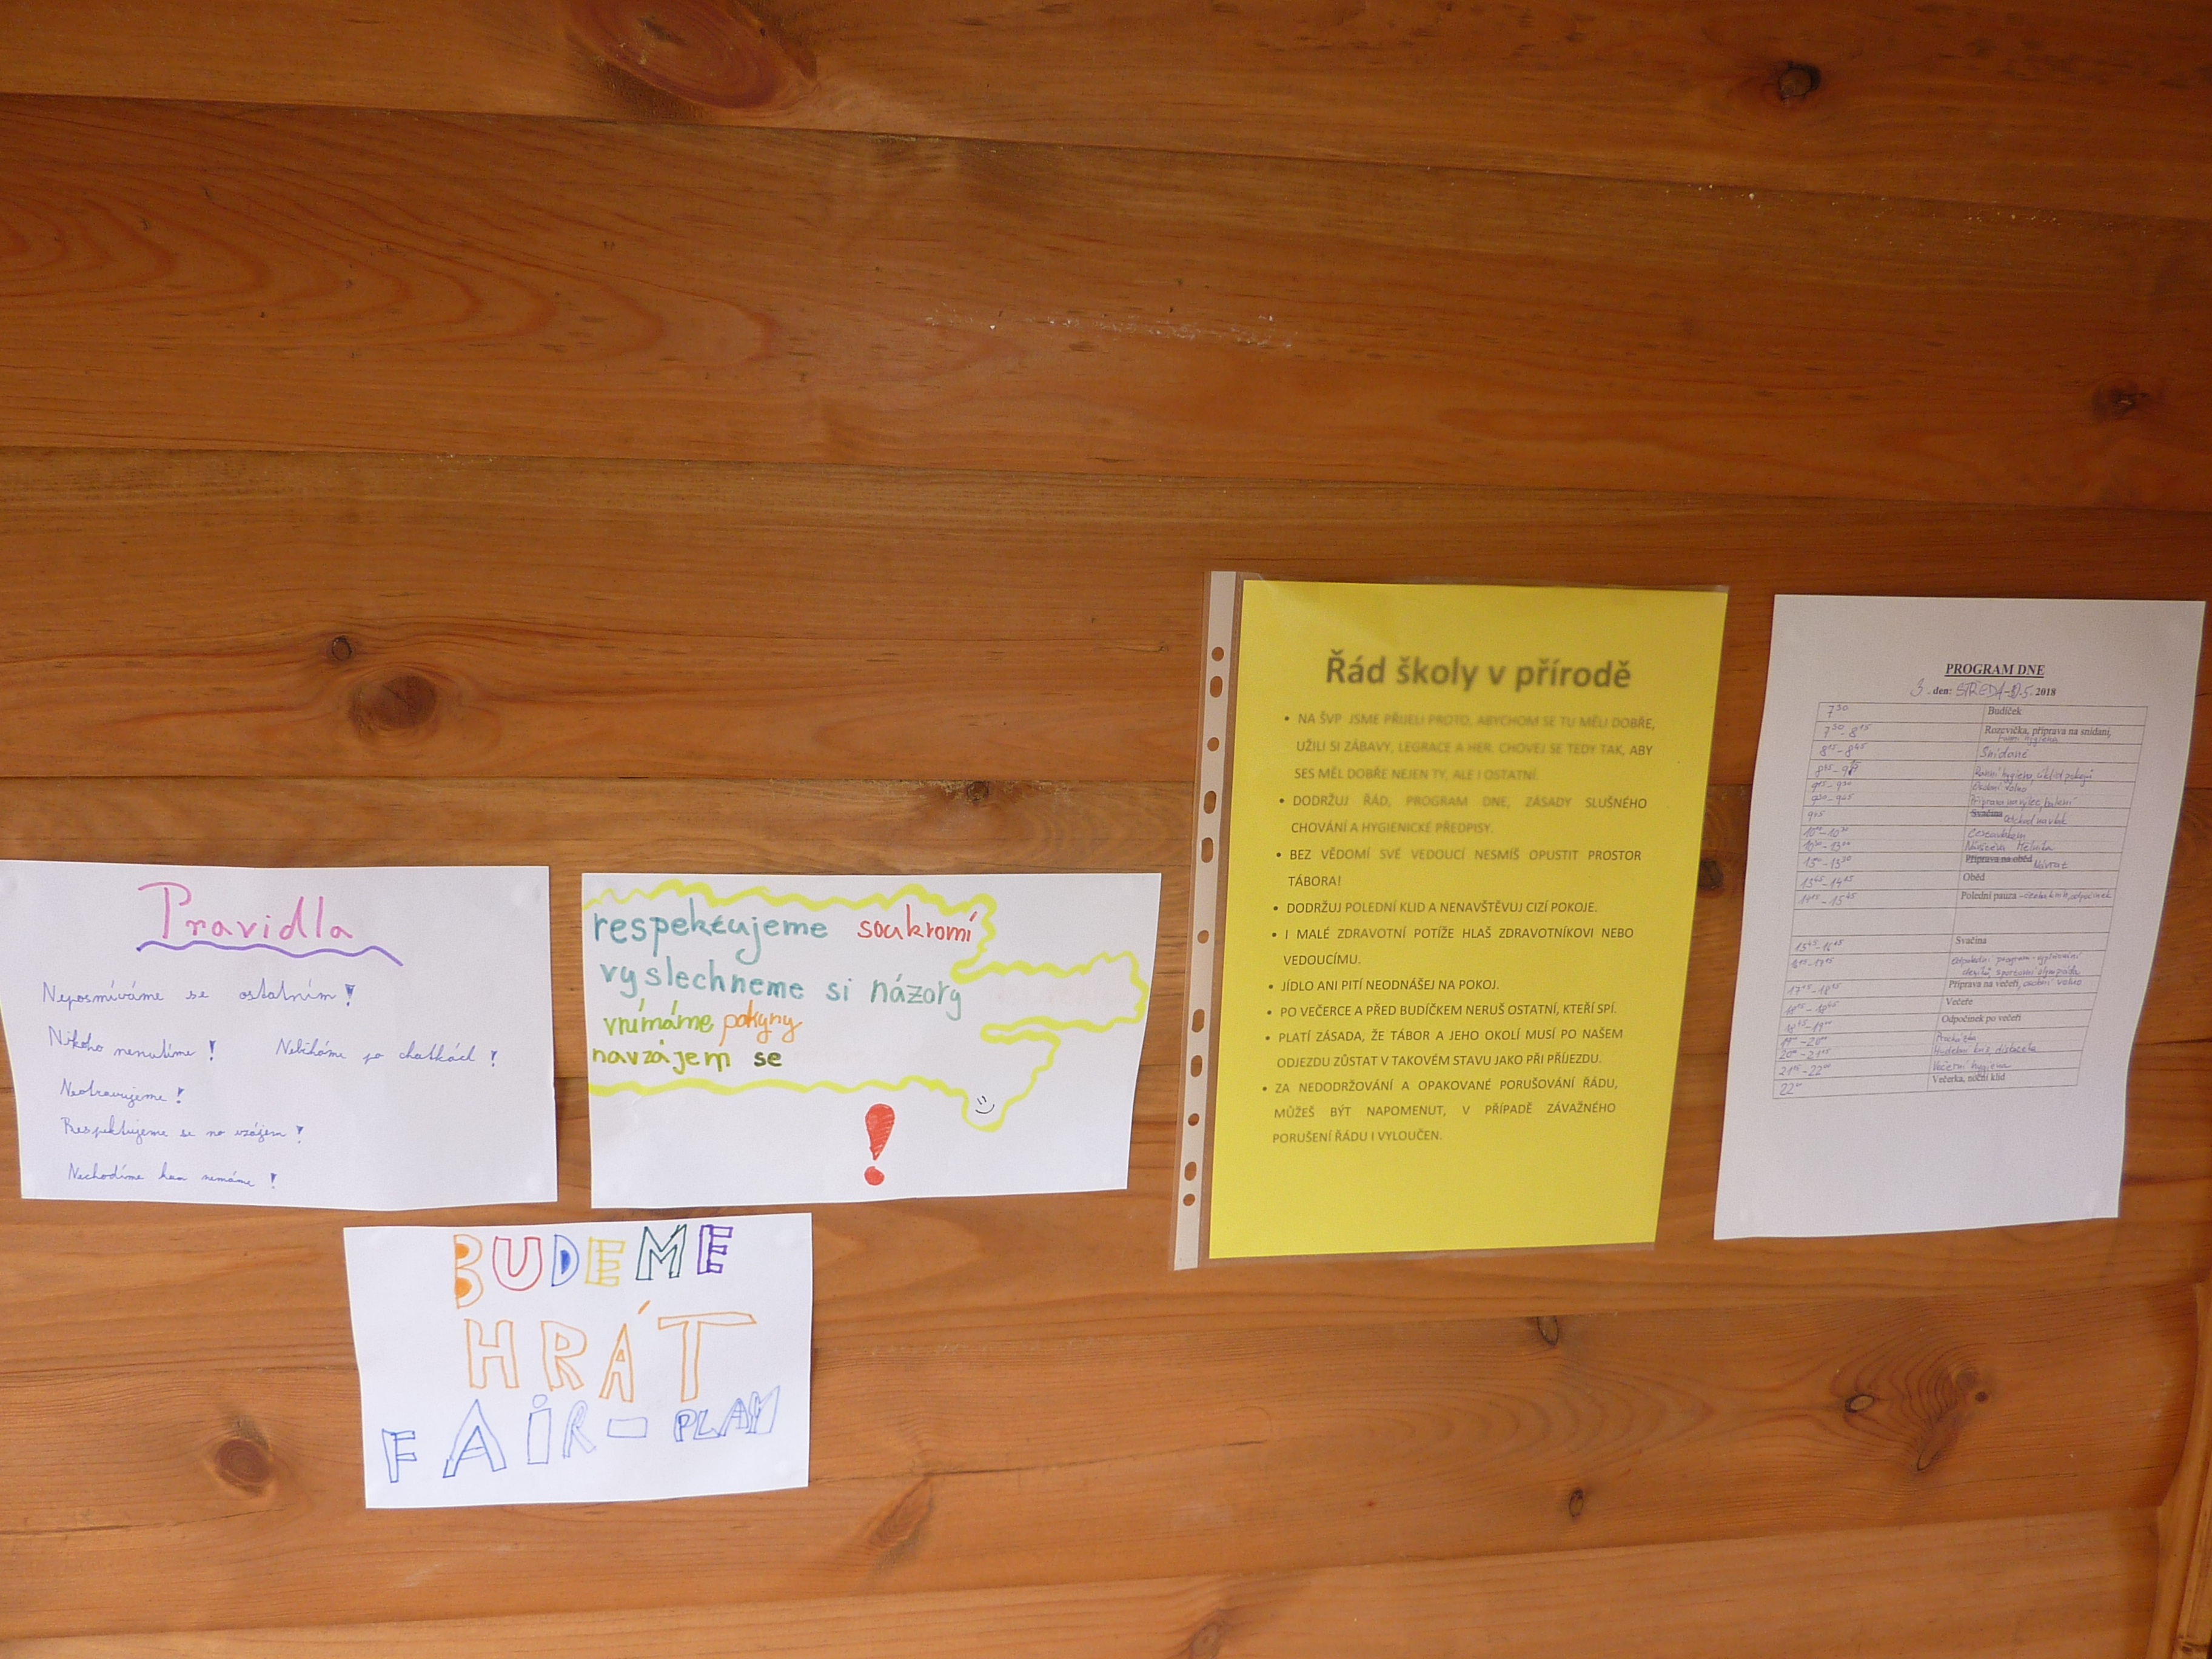 Pravidla
Neposmíváme se ostatním!
Nikoho nenutíme! Neběháme po chatkách!
Neotravujeme!
Respektujeme se na vzájem!
Nechodíme kam nemáme!
respektujeme soukromí
vyslechneme si názory
vnímáme pokyny
navzájem se
!
BUDEME
HRÁT
FAIR-PLAY
Řád školy v přírodě
• NA ŠVP JSME PŘIJELI PROTO, ABYCHOM SE TU MĚLI DOBŘE,
UŽILI SI ZÁBAVY, LEGRACE A HER. CHOVEJ SE TEDY TAK, ABY
SES MĚL DOBŘE NEJEN TY, ALE I OSTATNÍ.
• DODRŽUJ ŘÁD, PROGRAM DNE, ZÁSADY SLUŠNÉHO
CHOVÁNÍ A HYGIENICKÉ PŘEDPISY.
• BEZ VĚDOMÍ SVÉ VEDOUCÍ NESMÍŠ OPUSTIT PROSTOR
TÁBORA!
• DODRŽUJ POLEDNÍ KLID A NENAVŠTĚVUJ CIZÍ POKOJE.
• I MALÉ ZDRAVOTNÍ POTÍŽE HLAŠ ZDRAVOTNÍKOVI NEBO
VEDOUCÍMU.
• JÍDLO ANI PITÍ NEODNÁŠEJ NA POKOJ.
• PO VEČERCE A PŘED BUDÍČKEM NERUŠ OSTATNÍ, KTEŘÍ SPÍ.
• PLATÍ ZÁSADA, ŽE TÁBOR A JEHO OKOLÍ MUSÍ PO NAŠEM
ODJEZDU ZŮSTAT V TAKOVÉM STAVU JAKO PŘI PŘÍJEZDU.
• ZA NEDODRŽOVÁNÍ A OPAKOVANÉ PORUŠOVÁNÍ ŘÁDU,
MŮŽEŠ BÝT NAPOMENUT, V PŘÍPADĚ ZÁVAŽNÉHO
PORUŠENÍ ŘÁDU I VYLOUČEN.
PROGRAM DNE
3. den: STŘEDA 2018
7 30 Budíček
7 30 - 8 15 Rozcvička, příprava na snídani,
ranní hygiena
8 15 - 8 45 Snídaně
Ranní hygiena, úklid pokojů
Osobní volno
Svačina Odchod na vlak
Cesta vlakem
Návštěva Mělníka
Příprava na oběd Návrat
Oběd
Polední pauza
Svačina
Odpolední program
Příprava na večeři, osobní volno
Večeře
Odpočinek po večeři
Procházka
Hudební kvíz, diskotéka
Večerní hygiena
22 00 Večerka, noční klid